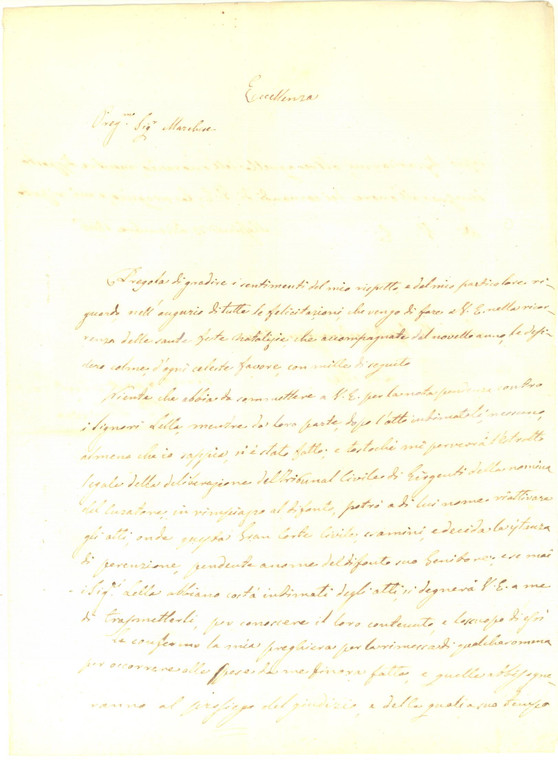 Eccellenza
Preg.mo Sig.r Marchese
Pregola di gradire i sentimenti del mio rispetto e del mio particolare ri-
guardo nell'augurio di tutte le felicitazioni che vengo di fare a V. E. nella ricor-
renza delle sante feste natalizie che accompagnate del novello anno, le desi-
dero colme d'ogni celeste favore, con mille di seguito
Niente che abbia da commettere a V. E. per la nota pendenza contro
i Signori Lella, mentre da loro parte, dopo l'atto indimatoli, nessuno,
almeno che io sappia, si è stato fatto; e tostochè mi perverrà l'estratto
legale della deliberazione del Tribunal Civile di Girgenti della nomina
del Curatore, in rimpiazzo al difonto, potrò a di lui nome riattivare
gli atti, onde questa Gran Corte Civile, esamini e decida la istanza
di perenzione, pendente a nome del difonto suo Genitore; e se mai
i Sig.ri Lella abbiano costà intimati degli atti, si degnerà V. E. a me
di trasmetterli, per conoscere il loro contenuto, e lo scopo di essi
Le confermo la mia preghiera per la rimessa di qualche somma
per occorrere alle spese da me finora fatte, e quelle abbisogne-
ranno al prosieguo del giudizio, e della quali a suo tempo